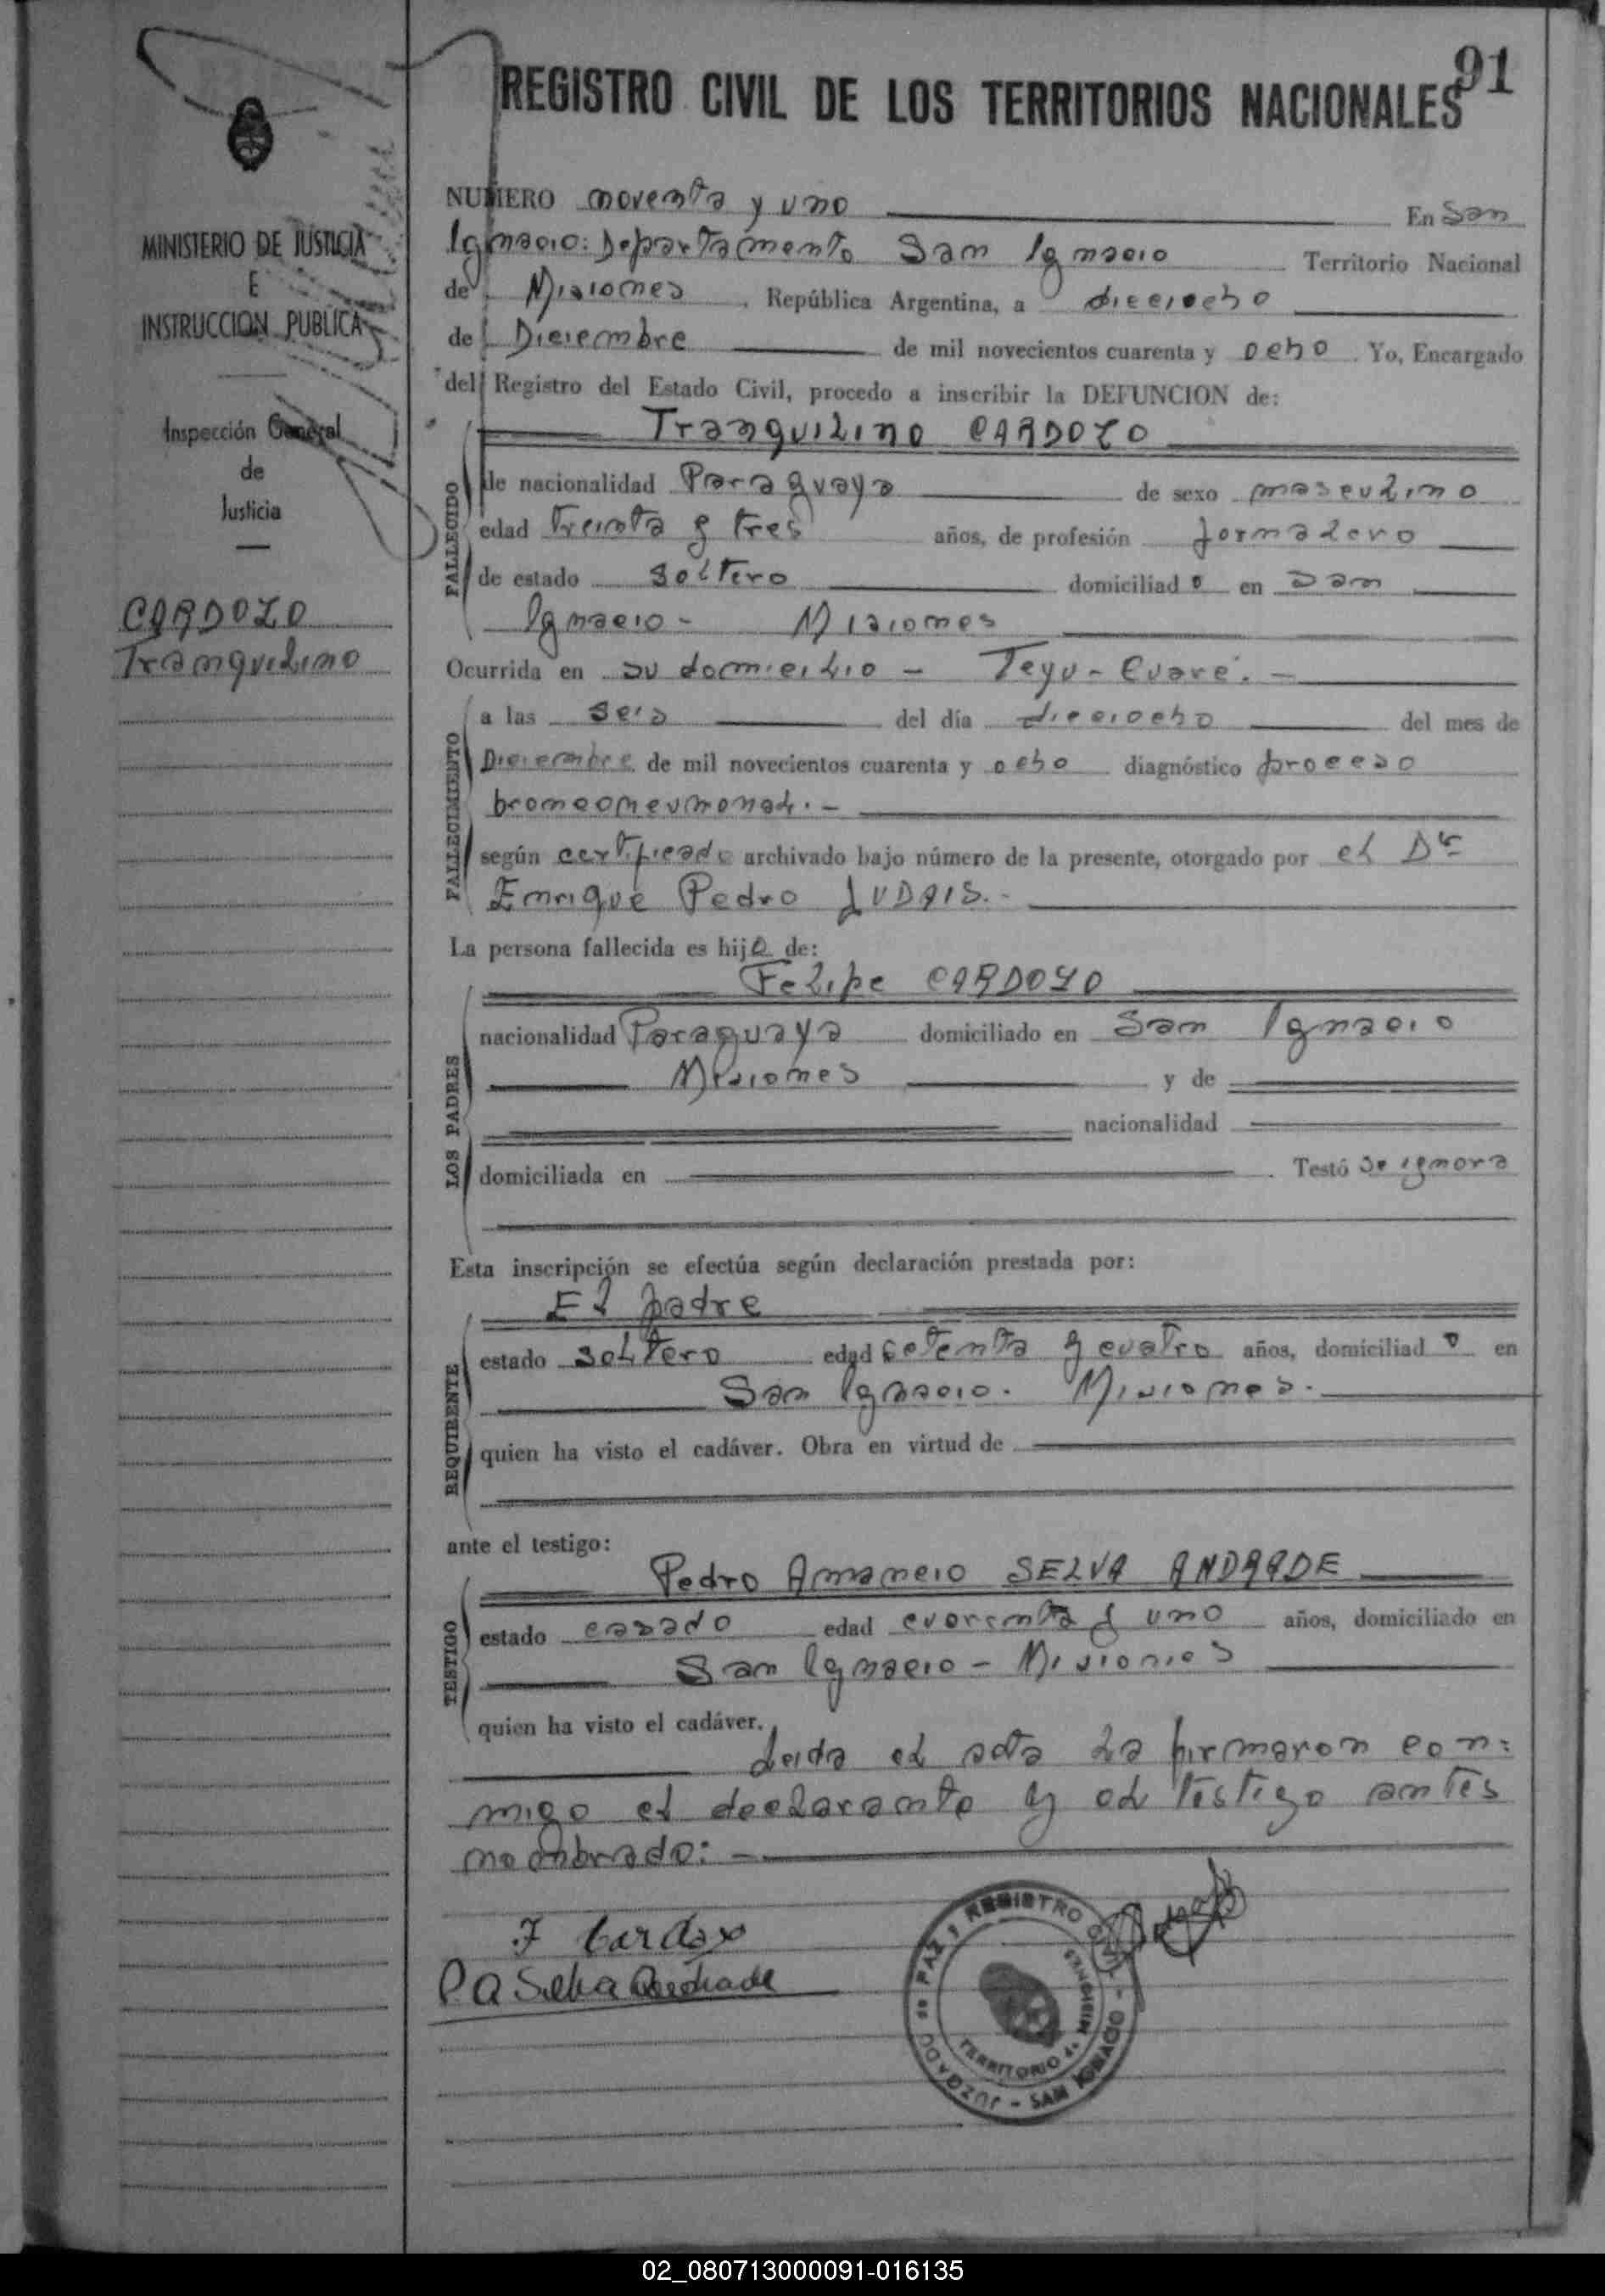 91
REGISTRO CIVIL DE LOS TERRITORIOS NACIONALES
MINISTERIO DE JUSTICIA
E
INSTRUCCION PUBLICA
Inspección General
de
Justicia
CARDOZO
Tranquilino
NUMERO noventa y uno En San
Ignacio: Departamento San Ignacio Territorio Nacional
de Misiones, República Argentina, a dieciocho
de Diciembre de mil novecientos cuarenta y ocho. Yo, Encargado
del Registro del Estado Civil, procedo a inscribir la DEFUNCION de:
Tranquilino CARDOZO
FALLECIDO
de nacionalidad Paraguaya de sexo masculino
edad treinta y tres años, de profesión jornalero
de estado soltero domiciliado en San
Ignacio - Misiones
Ocurrida en su domicilio - Teyu-Cuaré. -
FALLECIMIENTO
a las seis del día dieciocho del mes de
Diciembre de mil novecientos cuarenta y ocho diagnóstico proceso
bronconeumonal. -
según certificado archivado bajo número de la presente, otorgado por el Dr
Enrique Pedro JUDAIS. -
La persona fallecida es hijo de:
Felipe CARDOZO
LOS PADRES
nacionalidad Paraguaya domiciliado en San Ignacio
Misiones y de
nacionalidad
domiciliada en . Testó se ignora
Esta inscripción se efectúa según declaración prestada por:
El padre
REQUIRENTE
estado soltero edad setenta y cuatro años, domiciliado en
San Ignacio. Misiones.
quien ha visto el cadáver. Obra en virtud de
ante el testigo:
Pedro Amancio SELVA ANDRADE
TESTIGO
estado casado edad cuarenta y uno años, domiciliado en
San Ignacio - Misiones
quien ha visto el cadáver.
Leida el acta la firmaron con:
migo el declarante y el testigo antes
nombrado: -
F Cardozo
P A Selva Andrade
JUZGADO DE PAZ Y REGISTRO CIVIL - SAN IGNACIO -
TERRITORIO de MISIONES
02_080713000091-016135